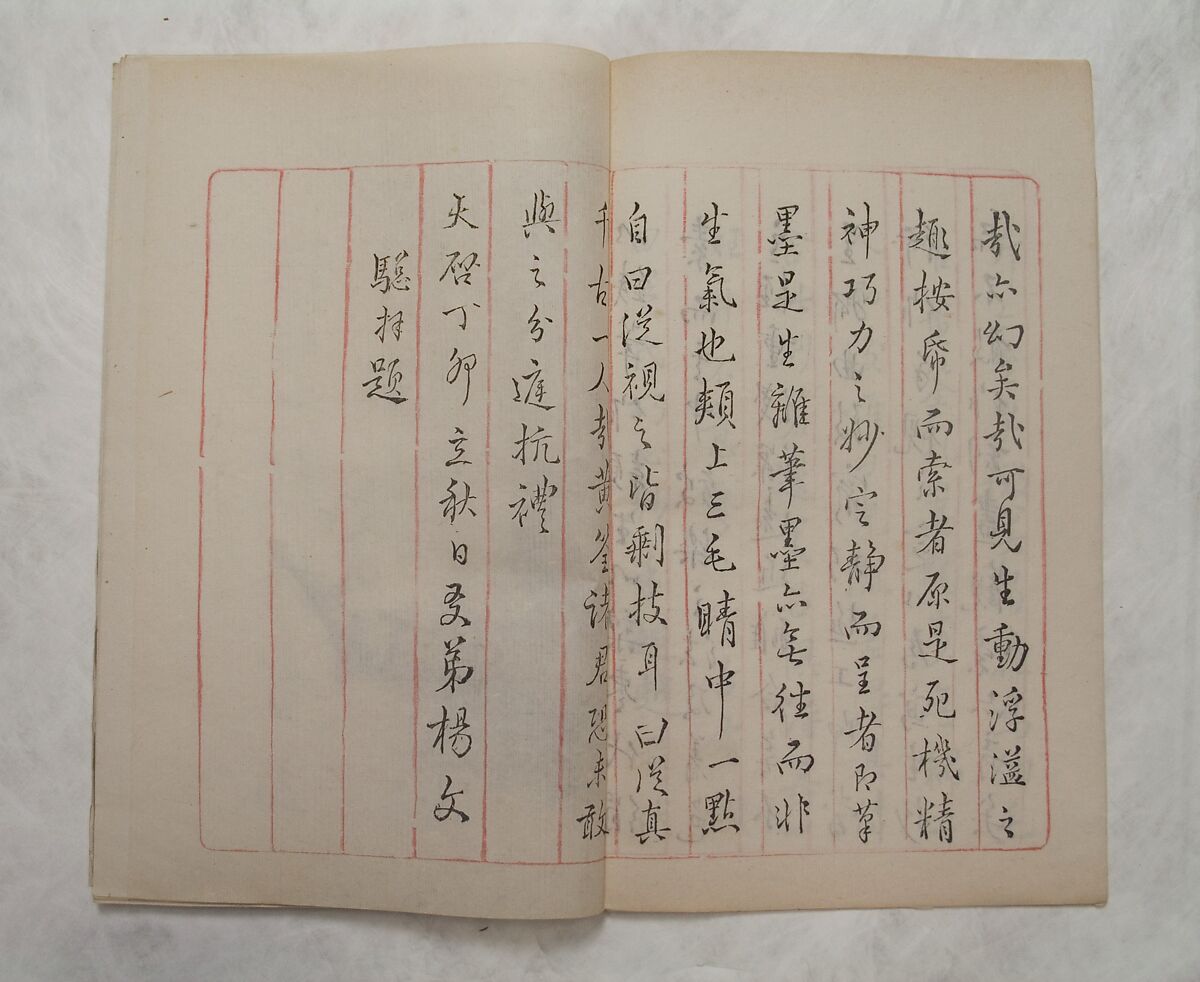 哉亦幻矣哉可見生動浮溢之
趣按帋而索者原是死機精
神巧力之妙定靜而呈者即筆
墨是生離筆墨亦無往而非
生氣也頰上三毛睛中一點
自曰從視之皆剩技耳曰從真
千古一人哉黃筌諸君恐未敢
與之分庭抗禮
天啓丁卯立秋日友弟楊文
驄拜題